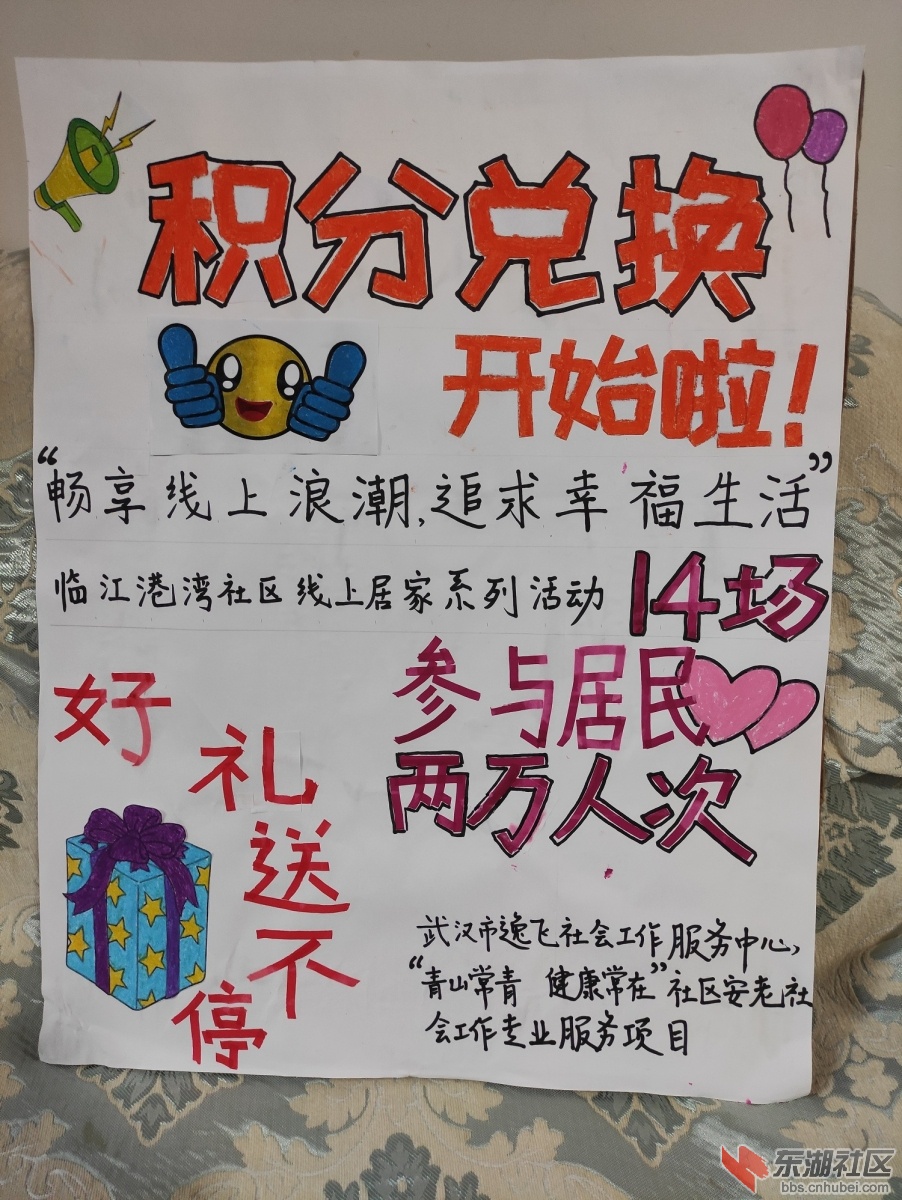 积分兑换
开始啦！
“畅享线上浪潮,追求幸福生活”
临江港湾社区线上居家系列活动 14场
参与居民
两万人次
好礼送不停
武汉市逸飞社会工作服务中心,
“青山常青 健康常在”社区安老社
会工作专业服务项目
东湖社区
bbs.cnhubei.com